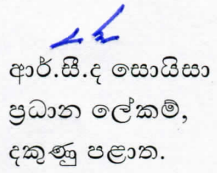 ආර්.සී.ද සොයිසා
ප්‍රධාන ලේකම්,
දකුණු පළාත.